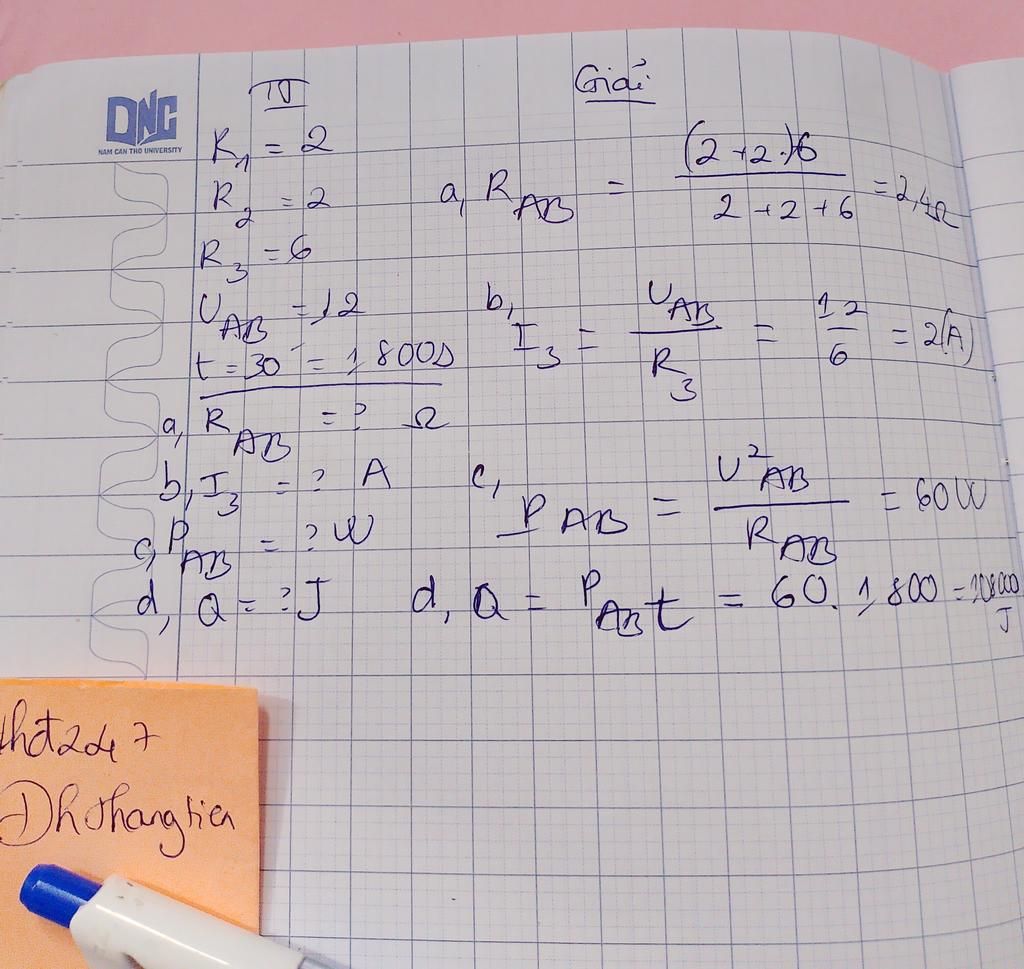 TT
Giải
DNC
NAM CAN THO UNIVERSITY
R1 = 2
R2 = 2
R3 = 6
UAB = 12
t = 30' = 1800s
a, RAB = ? Ω
b, I3 = ? A
c, PAB = ? W
d, Q = ? J
a, RAB = (2+2.)6 / 2+2+6 = 2,4Ω
b, I3 = UAB / R3 = 12 / 6 = 2(A)
c, PAB = U²AB / RAB = 60W
d, Q = PAB t = 60. 1800 = 108000 J
Đhơhangtien